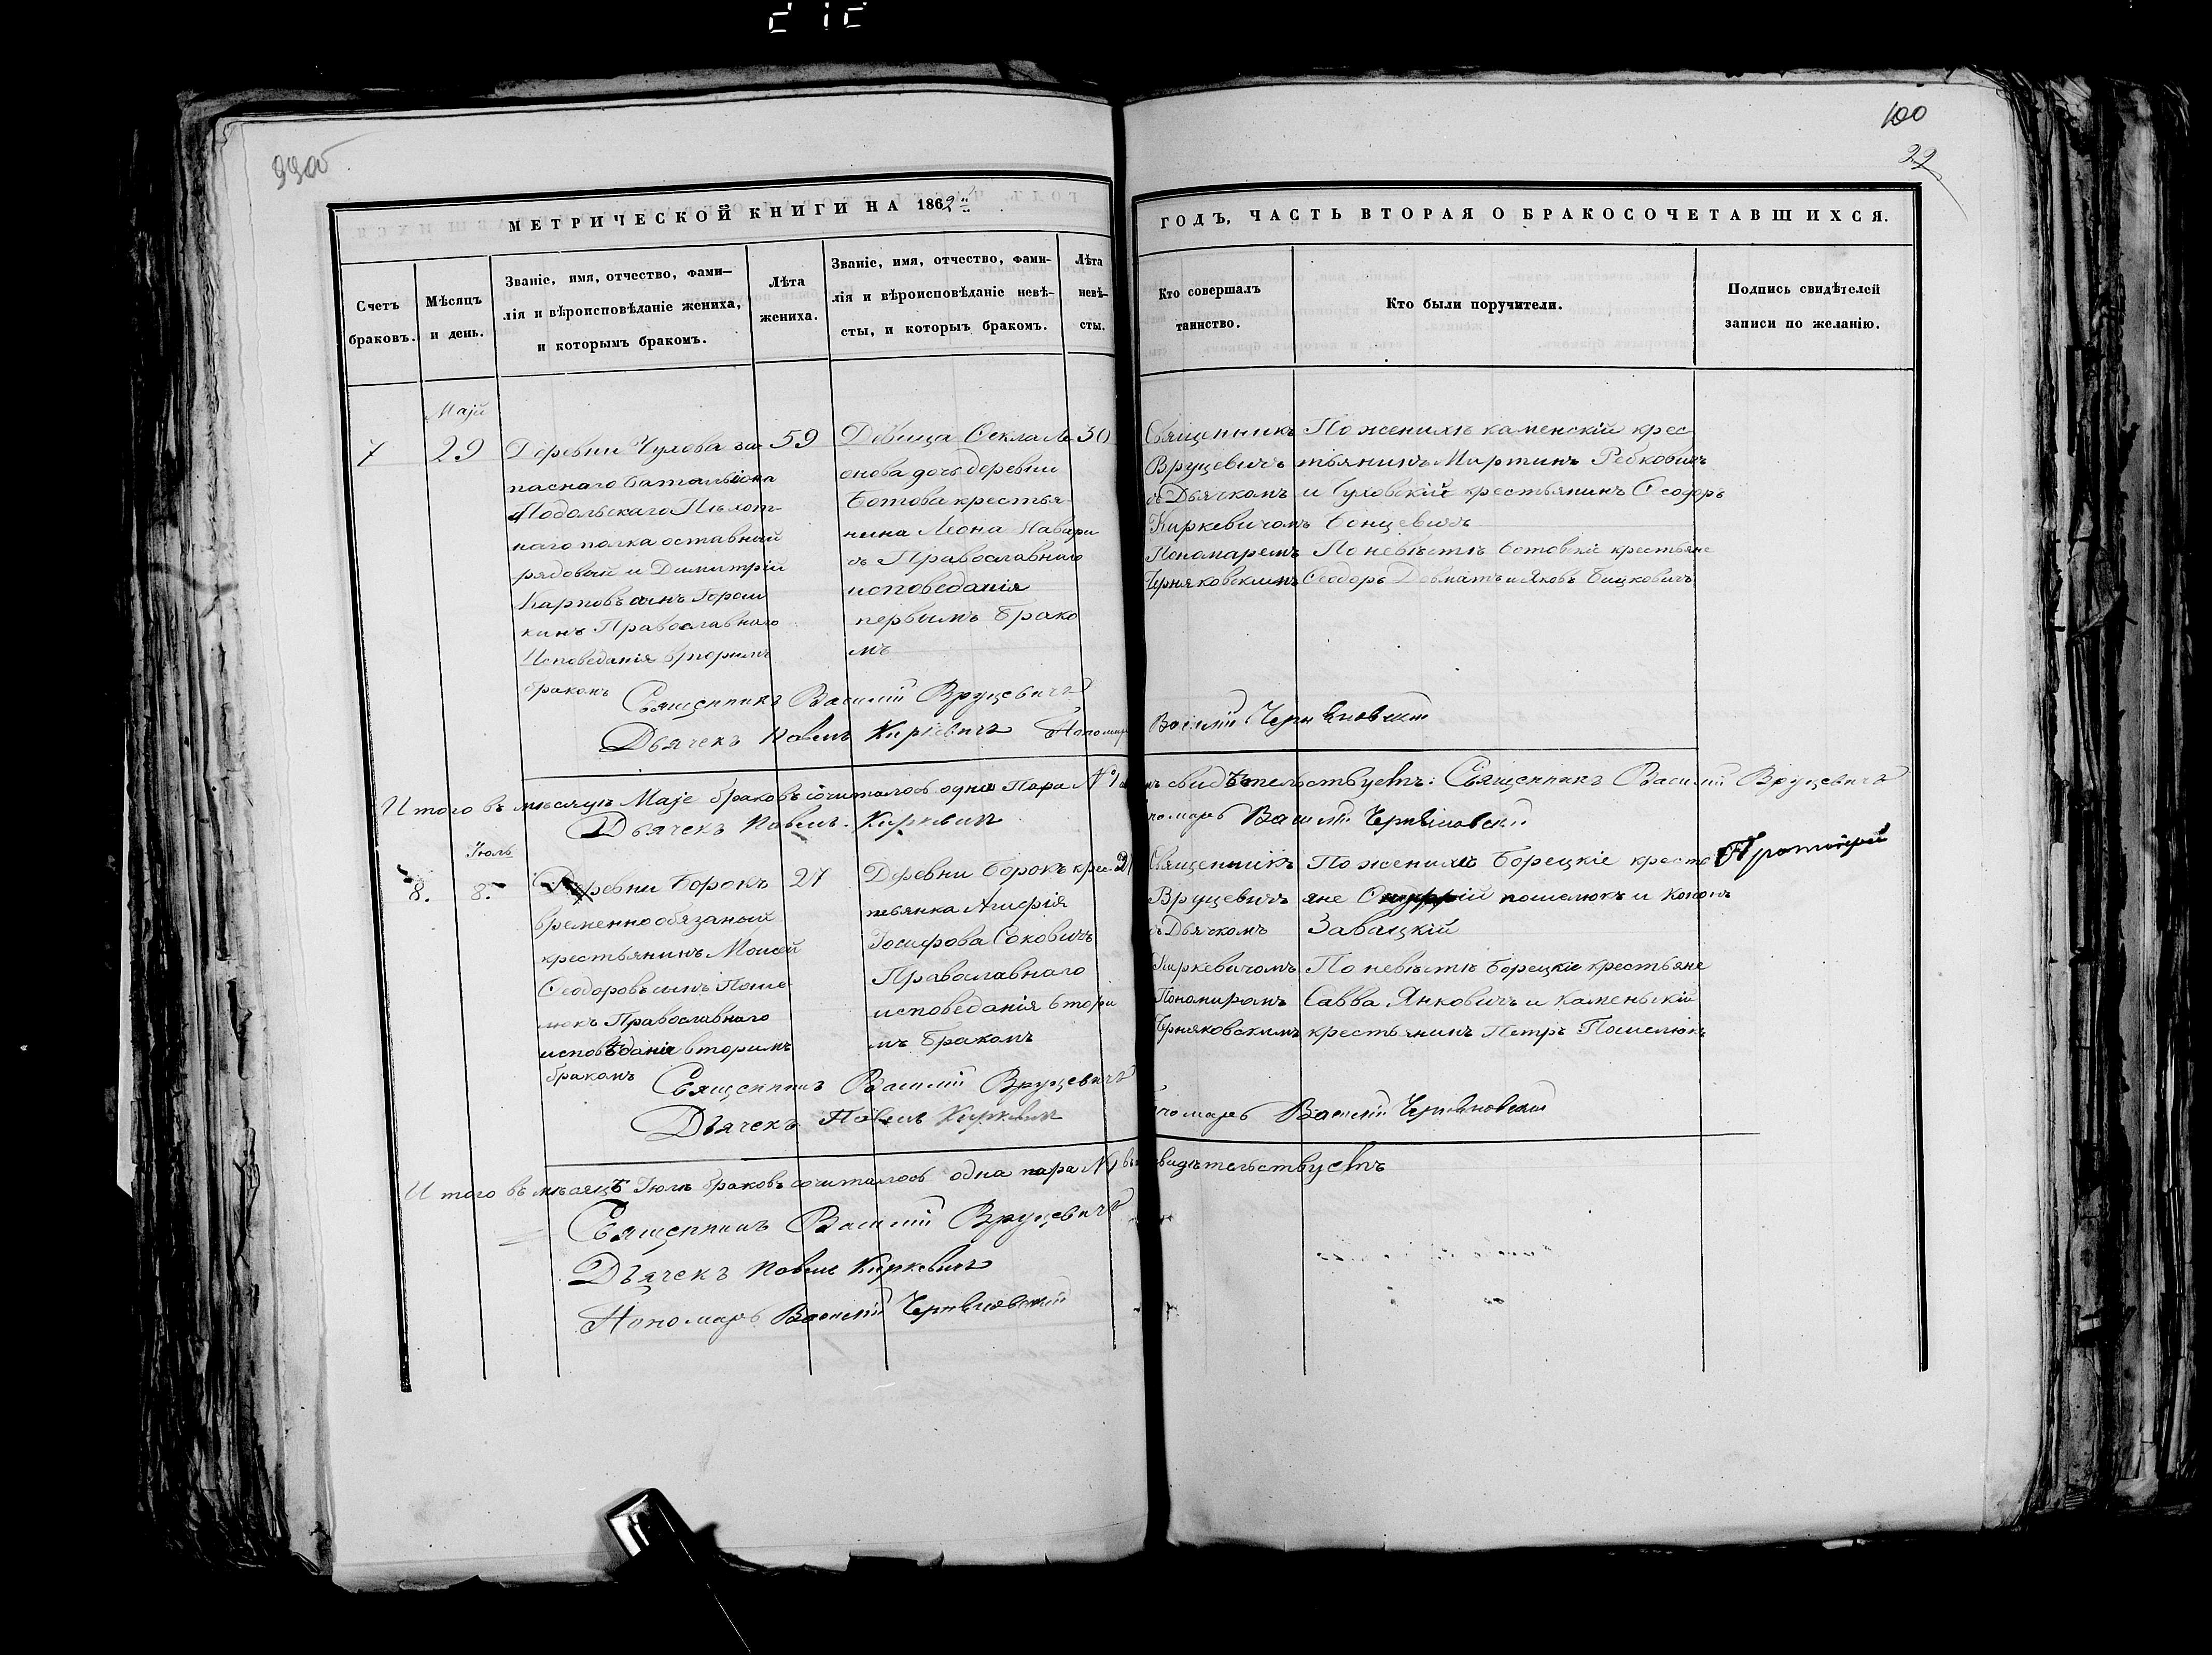 99об
100
МЕТРИЧЕСКОЙ КНИГИ НА 1862й
ГОДЪ, ЧАСТЬ ВТОРАЯ О БРАКОСОЧЕТАВШИХСЯ.
Счетъ
браковъ.
Мѣсяцъ
и день.
Званіе, имя, отчество, фами–
лія и вѣроисповѣданіе жениха,
и которымъ бракомъ.
Лѣта
жениха.
Званіе, имя, отчество, фами-
лія и вѣроисповѣданіе невѣ-
сты, и которыъ бракомъ.
Лѣта
невѣ-
сты.
Кто совершалъ
таинство.
Кто были поручители.
Подпись свидѣтелей
записи по желанію.
Маій
7
29
Деревни Чулова за
паснаго баталіона
Подольскаго Пѣхот-
наго полка оставный
рядовый и Димитрій
Карповъ сынъ Горош
кинъ Православнаго
Исповеданія вторымъ
бракомъ
59
Девица Ѳекла Ле
онова дочь деревни
Ботова крестья
нина Леона
Православнаго
исповеданія
первымъ брако
мъ
30
Священникъ
Вруцевичъ
съ Дьячкомъ
Киркевичомъ
Пономаремъ
Черняковскимъ
По женихѣ каменскій крес
тьянинъ Мартинъ Ребковичъ
и Чуловскій крестьянинъ Ѳеодоръ
Бонцевичъ
По невѣстѣ Ботовскіе крестьяне
Ѳеодоръ Довматъ и Яковъ Бицковичъ
Священникъ Василій Вруцевичъ
Дьячекъ Павелъ Киркевичъ Пономарь Василій Черняковскій
Итого въ мѣсяцѣ Маіе браковъ сочиталось одна Пара №1 въ чемъ свидѣтельствуетъ: Священникъ Василій Вруцевичъ
Дьячекъ Павелъ Киркевичъ Пономарь Василій Черняковскій
Іюль
8.
8.
Деревни Борокъ
временнообязаный
крестьянинъ Моисей
Ѳеодоровъ сынъ Поше-
люкъ Православнаго
исповѣданія вторимъ
бракомъ
27
Деревни Борокъ крес
тьянка Агафія
Іосифова Соковичъ
Православнаго
исповеданія втори
мъ бракомъ
Священникъ
Вруцевичъ
съ Дьячкомъ
Киркевичомъ
Пономаромъ
Черняковскимъ
По женихѣ Борецкіе кресть
яне Онуфрій пошелюкъ и Кононъ
Завацкій
По невѣстѣ Борецкіе крестьяне
Савва Янковичъ и Каменьскій
крестьянинъ Петръ Пошелюкъ
Протоіерей
Священникъ Василій Вруцевичъ
Дьячекъ Павелъ Киркевичъ Пономарь Василій Черняковскій
Итого въ мѣсяцѣ Іюлѣ браковъ сочиталось одна пара №1 въ чемъ свидѣтельствуетъ
Священникъ Василій Вруцевичъ
Дьячекъ Павелъ Киркевичъ
Пономарь Василій Черняковскій